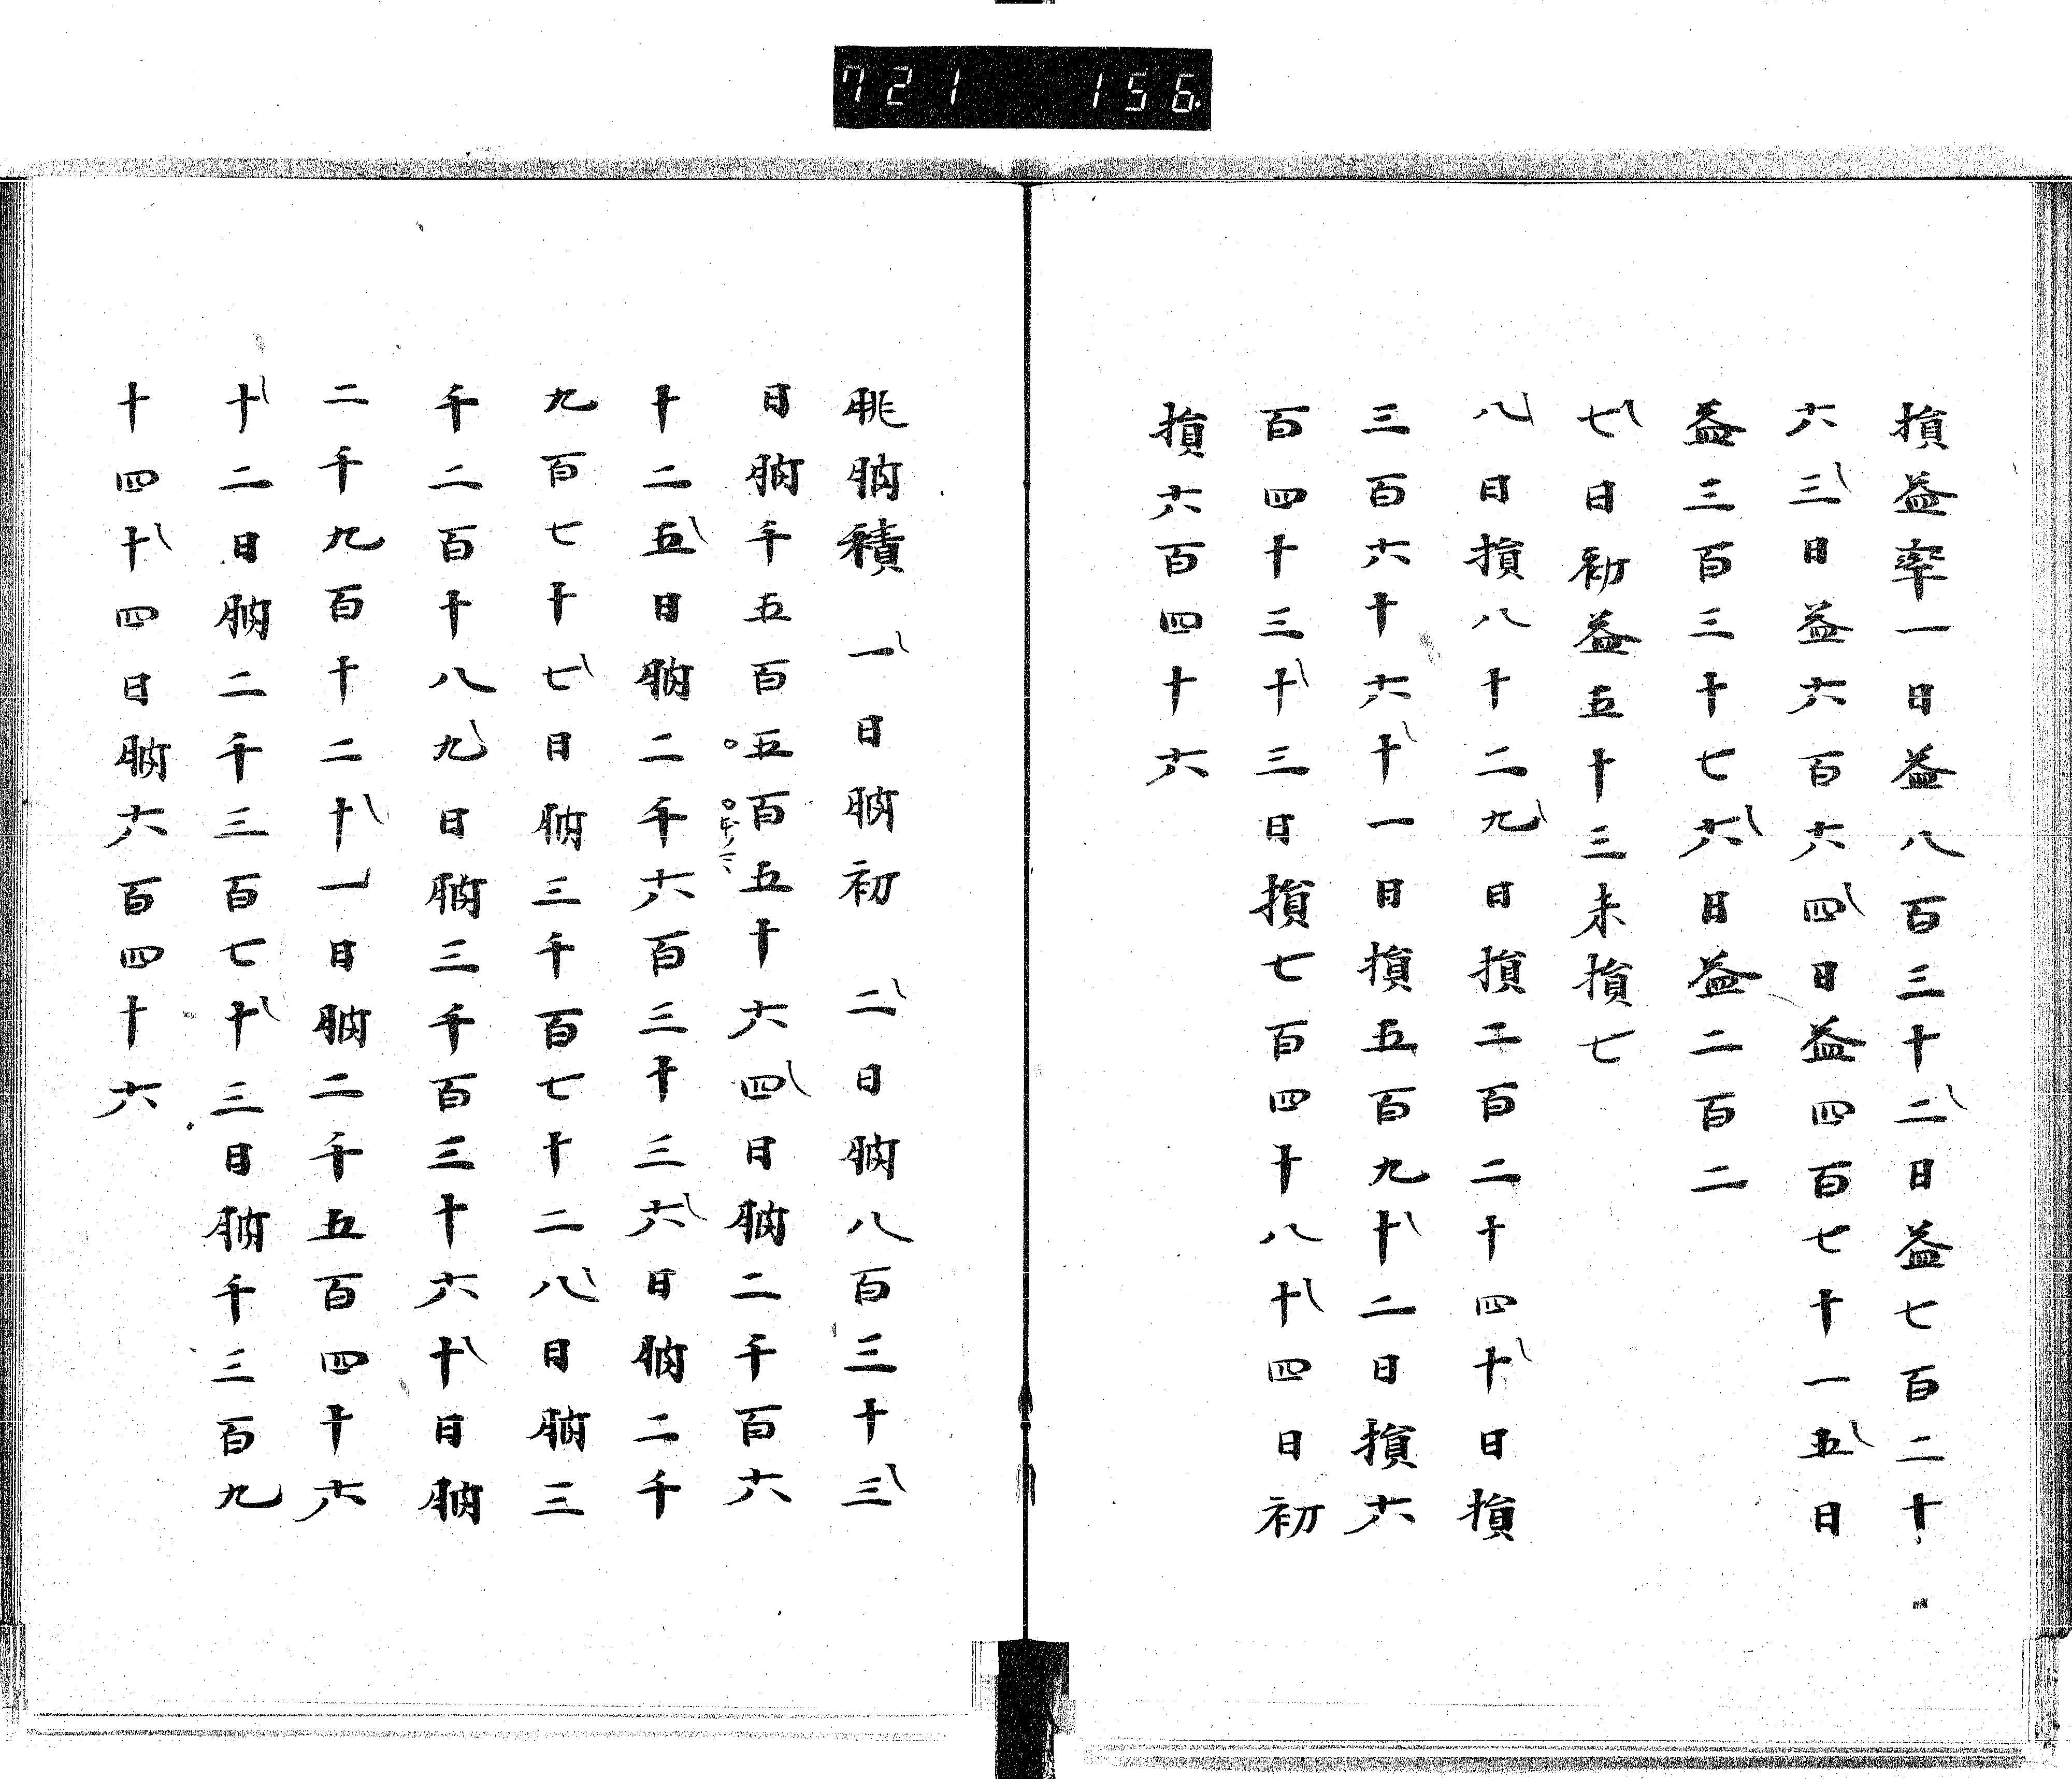 721 156
損益率一日益八百三十二日益七百二十
六三日益六百六四日益四百七十一五日
益三百三十七六日益二百二
七日初益五十三末損七
八日損八十二九日損二百二十四十日損
三百六十六十一日損五百九十二日損六
百四十三十三日損七百四十八十四日初
損六百四十六
朓朒積 一日朒初 二日朒八百三十三
日朒千五百五百五十六四日朒二千百六
十二五日朒二千六百三十三六日朒二千
九百七十七日朒三千百七十二八日朒三
千二百十八九日朒三千百三十六十日朒
二千九百十二十一日朒二千五百四十六
十二日朒二千三百七十三日朒千三百九
十四十四日朒六百四十六